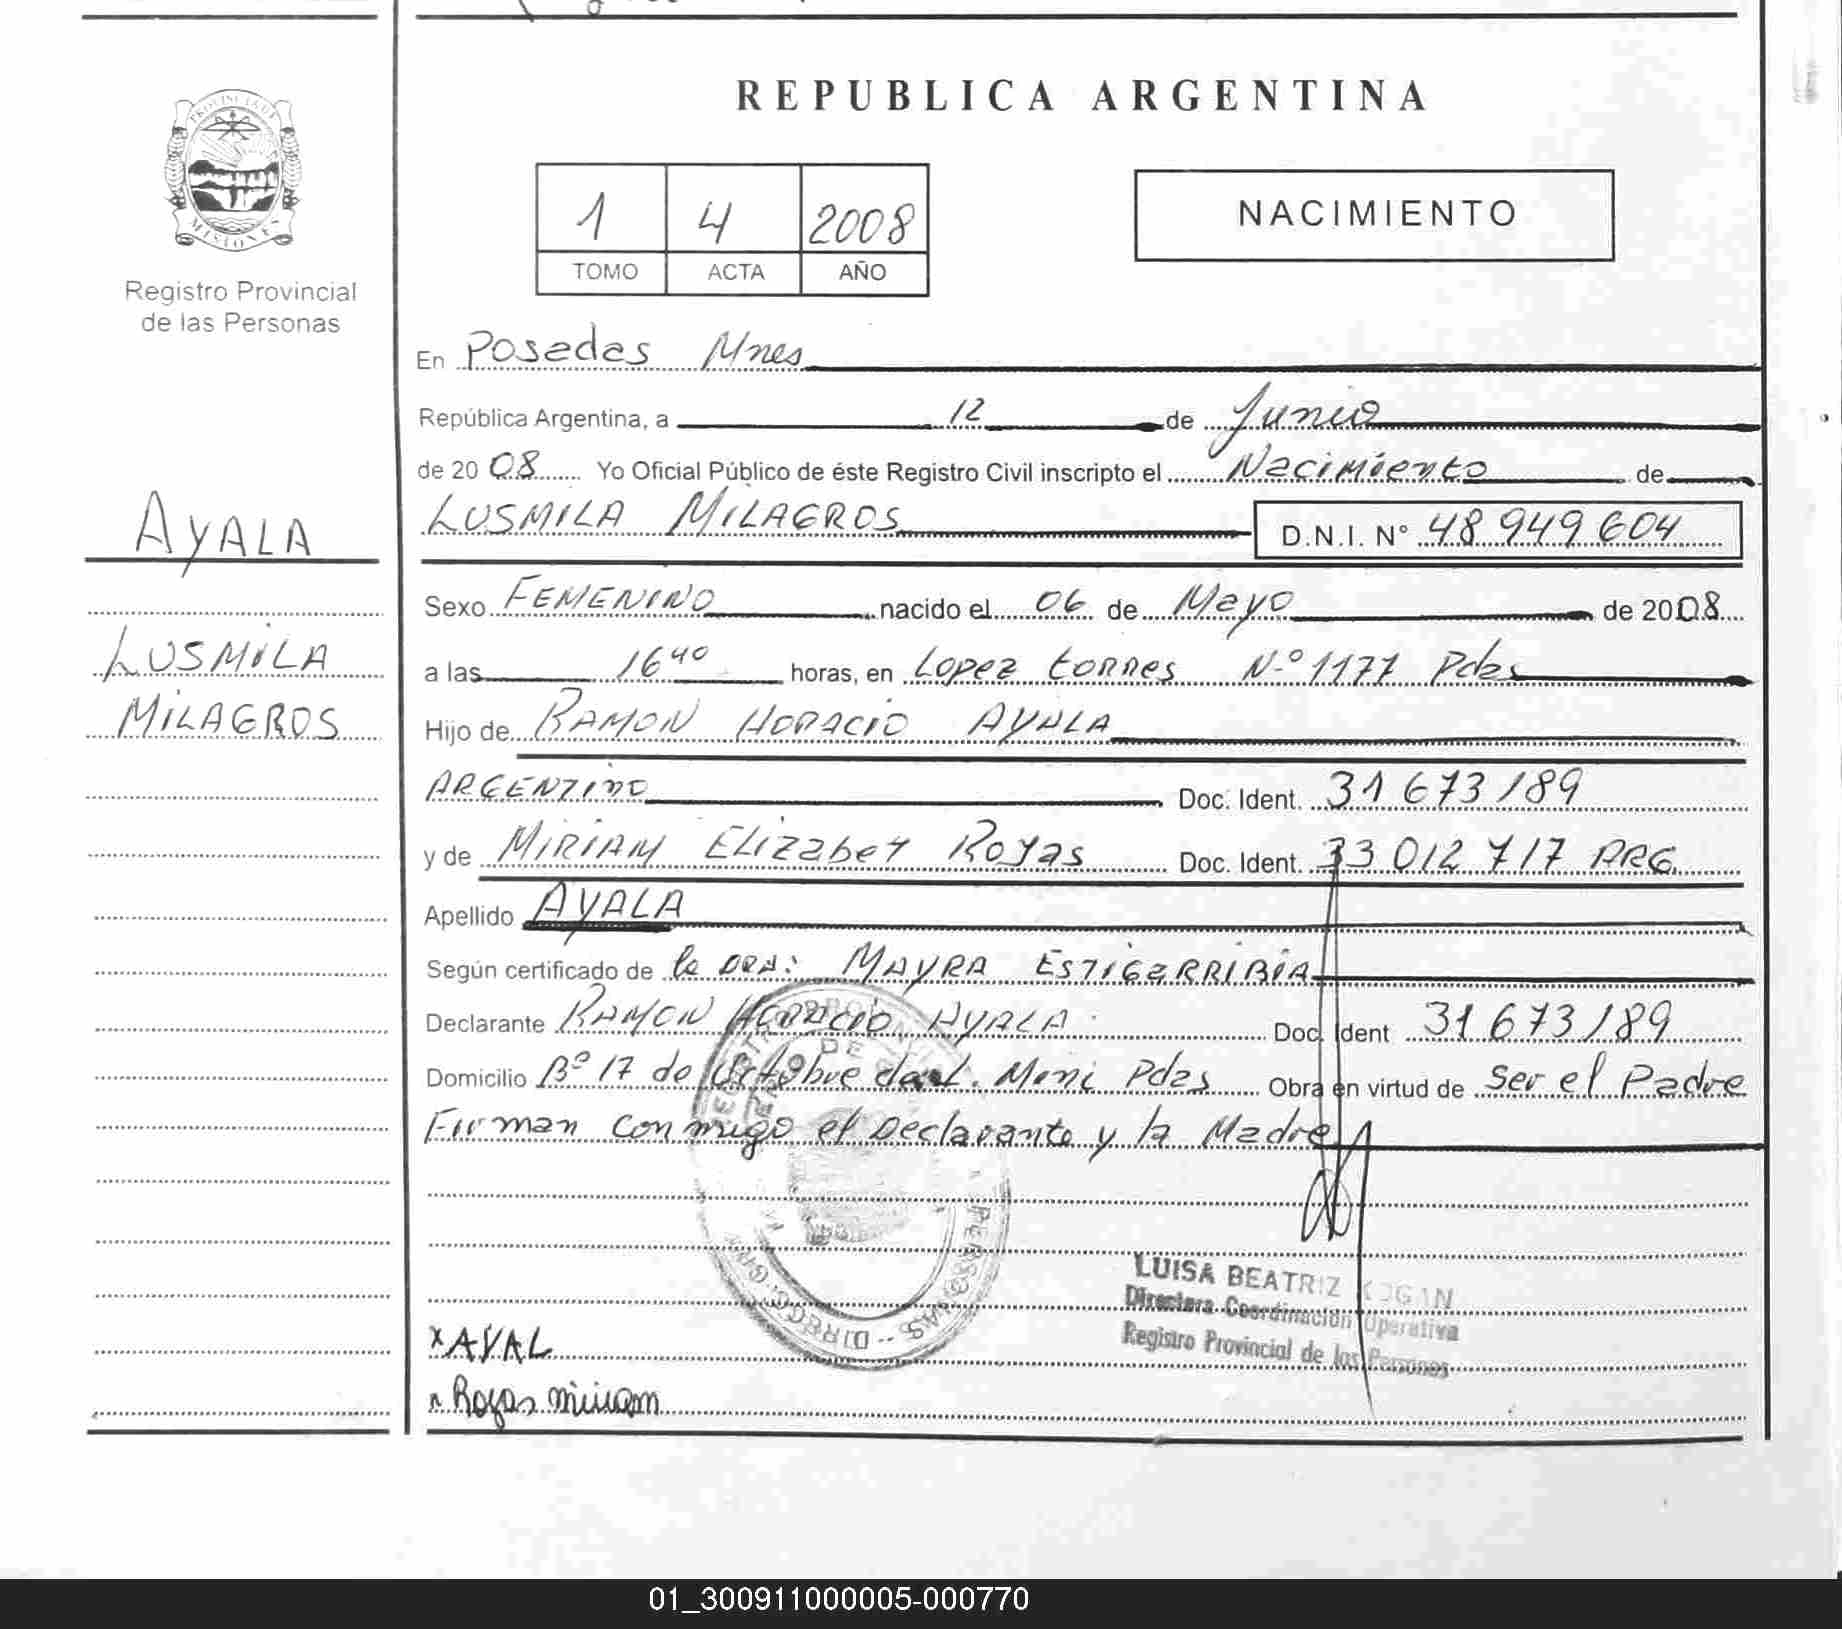 REPUBLICA ARGENTINA
PROVINCIA DE
MISIONES
Registro Provincial
de las Personas
1 4 2008
TOMO ACTA AÑO
NACIMIENTO
En Posadas Mnes
República Argentina, a 12 de Junio
de 2008 Yo Oficial Público de éste Registro Civil inscripto el Nacimiento de
LUSMILA MILAGROS D.N.I. N° 48 949 604
AYALA
LUSMILA
MILAGROS
Sexo FEMENINO nacido el 06 de Mayo de 2008
a las 16 40 horas, en Lopez torres N-º 1177 Pdas
Hijo de RAMON HORACIO AYALA
ARGENTINO Doc. Ident. 31 673 189
y de MIRIAM ELizabet Rojas Doc. Ident. 33 012 717 ARG.
Apellido AYALA
Según certificado de la DRA: MAYRA ESTIGARRIBIA
Declarante RAMON HORACIO AYALA Doc Ident 31 673 189
Domicilio Bº 17 de Octobre Mini Pdas Obra en virtud de Ser el Padre
Firman conmigo el Declarante y la Madre
LUISA BEATRIZ KOGAN
Directora Coordinación Operativa
Registro Provincial de las Personas
x AYAL
Rojas miriam
01_300911000005-000770